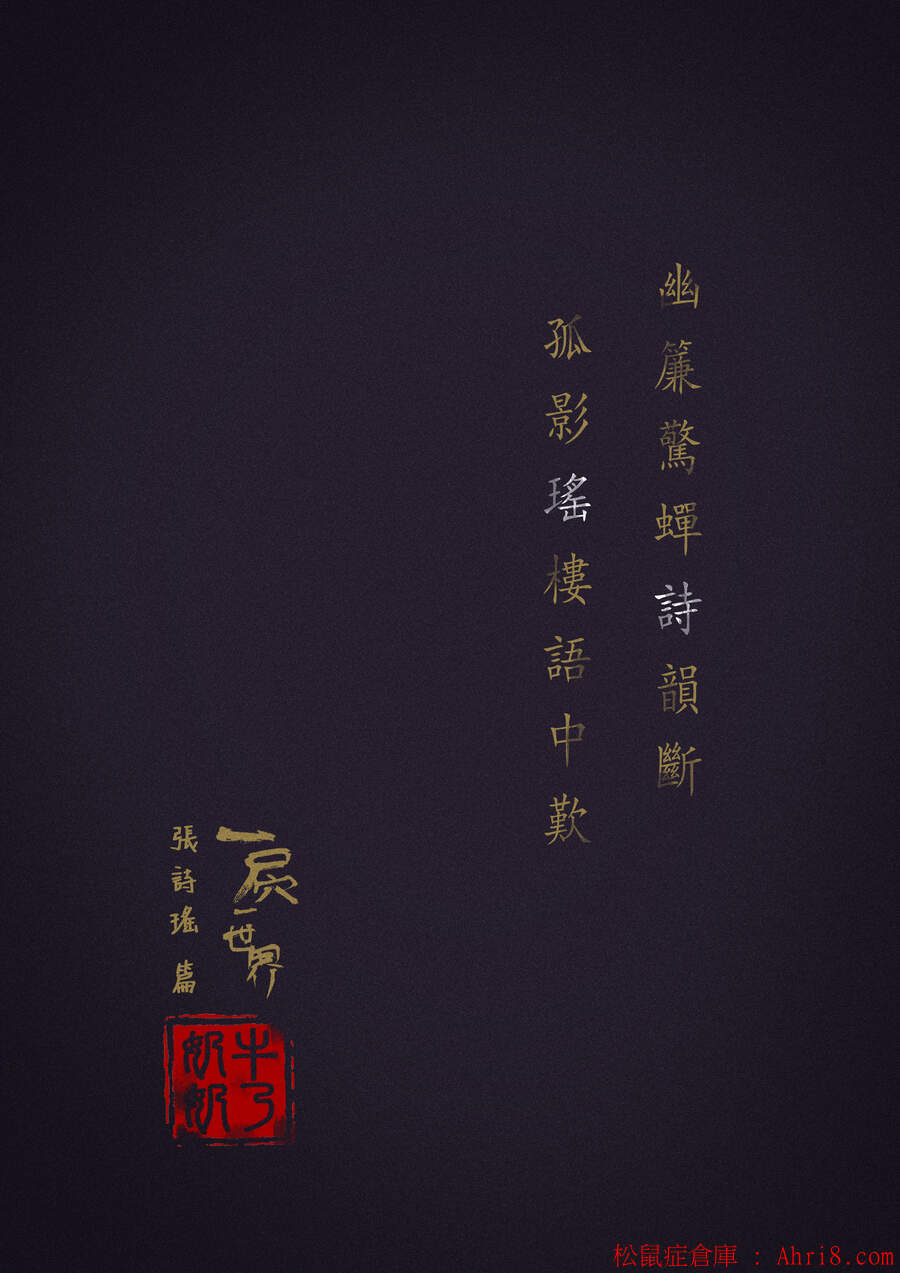 幽簾驚蟬詩韻斷
孤影瑤樓語中歎
一屄一世界
張詩瑤 篇
牛乃
奶奶
松鼠症倉庫 : Ahri8.com